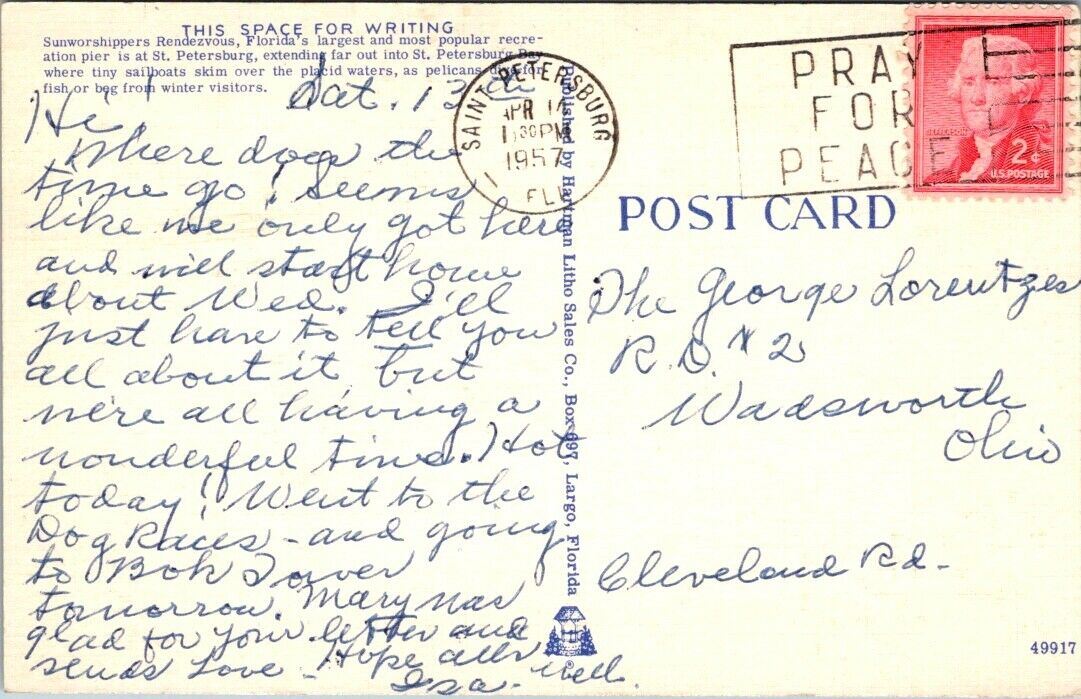 THIS SPACE FOR WRITING
Sunworshippers Rendezvous, Florida's largest and most popular recre-
ation pier is at St. Petersburg, extending far out into St. Petersburg Bay
where tiny sailboats skim over the placid waters, as pelicans dive for
fish or beg from winter visitors.
Sat. 13th
Hi!
Where does the
time go! Seems
like we only got here
and will start home
about Wed. I'll
just have to tell you
all about it, but
we're all having a
wonderful time. Hot
today! Went to the
Dog Races - and going
to Bok Tower
tomorrow. Mary was
glad for your letter and
sends love - Hope all's
well.
Iza -
Published by Hartman Litho Sales Co., Box 697, Largo, Florida
SAINT PETERSBURG
APR 14
1 30 PM
1957
FLA
PRAY
FOR
PEACE
JEFFERSON
2¢
U.S. POSTAGE
POST CARD
The George Lorentzes
R.D. # 2
Wadsworth
Ohio
Cleveland Rd -
49917